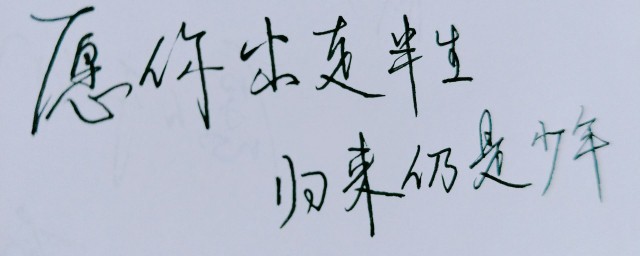 愿你出走半生
归来仍是少年